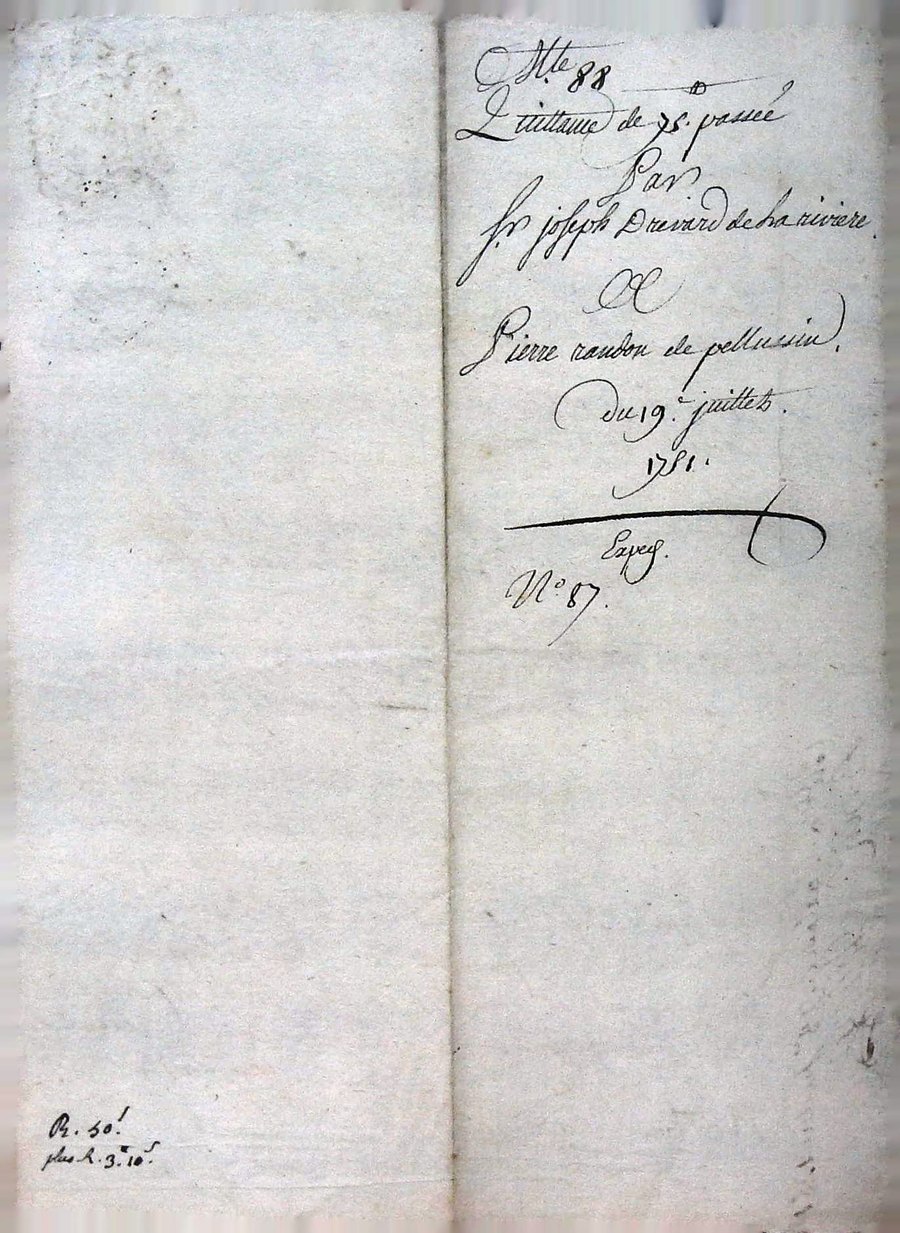 Cotte 88
Quittance de 75.# passée
Par
Sr joseph Drevard de La riviere.
A
Pierre randon de pellussin.
du 19.e juillet.
1751.
Exped.
No 87.
R. 50.l
plus R. 3.# 10.s